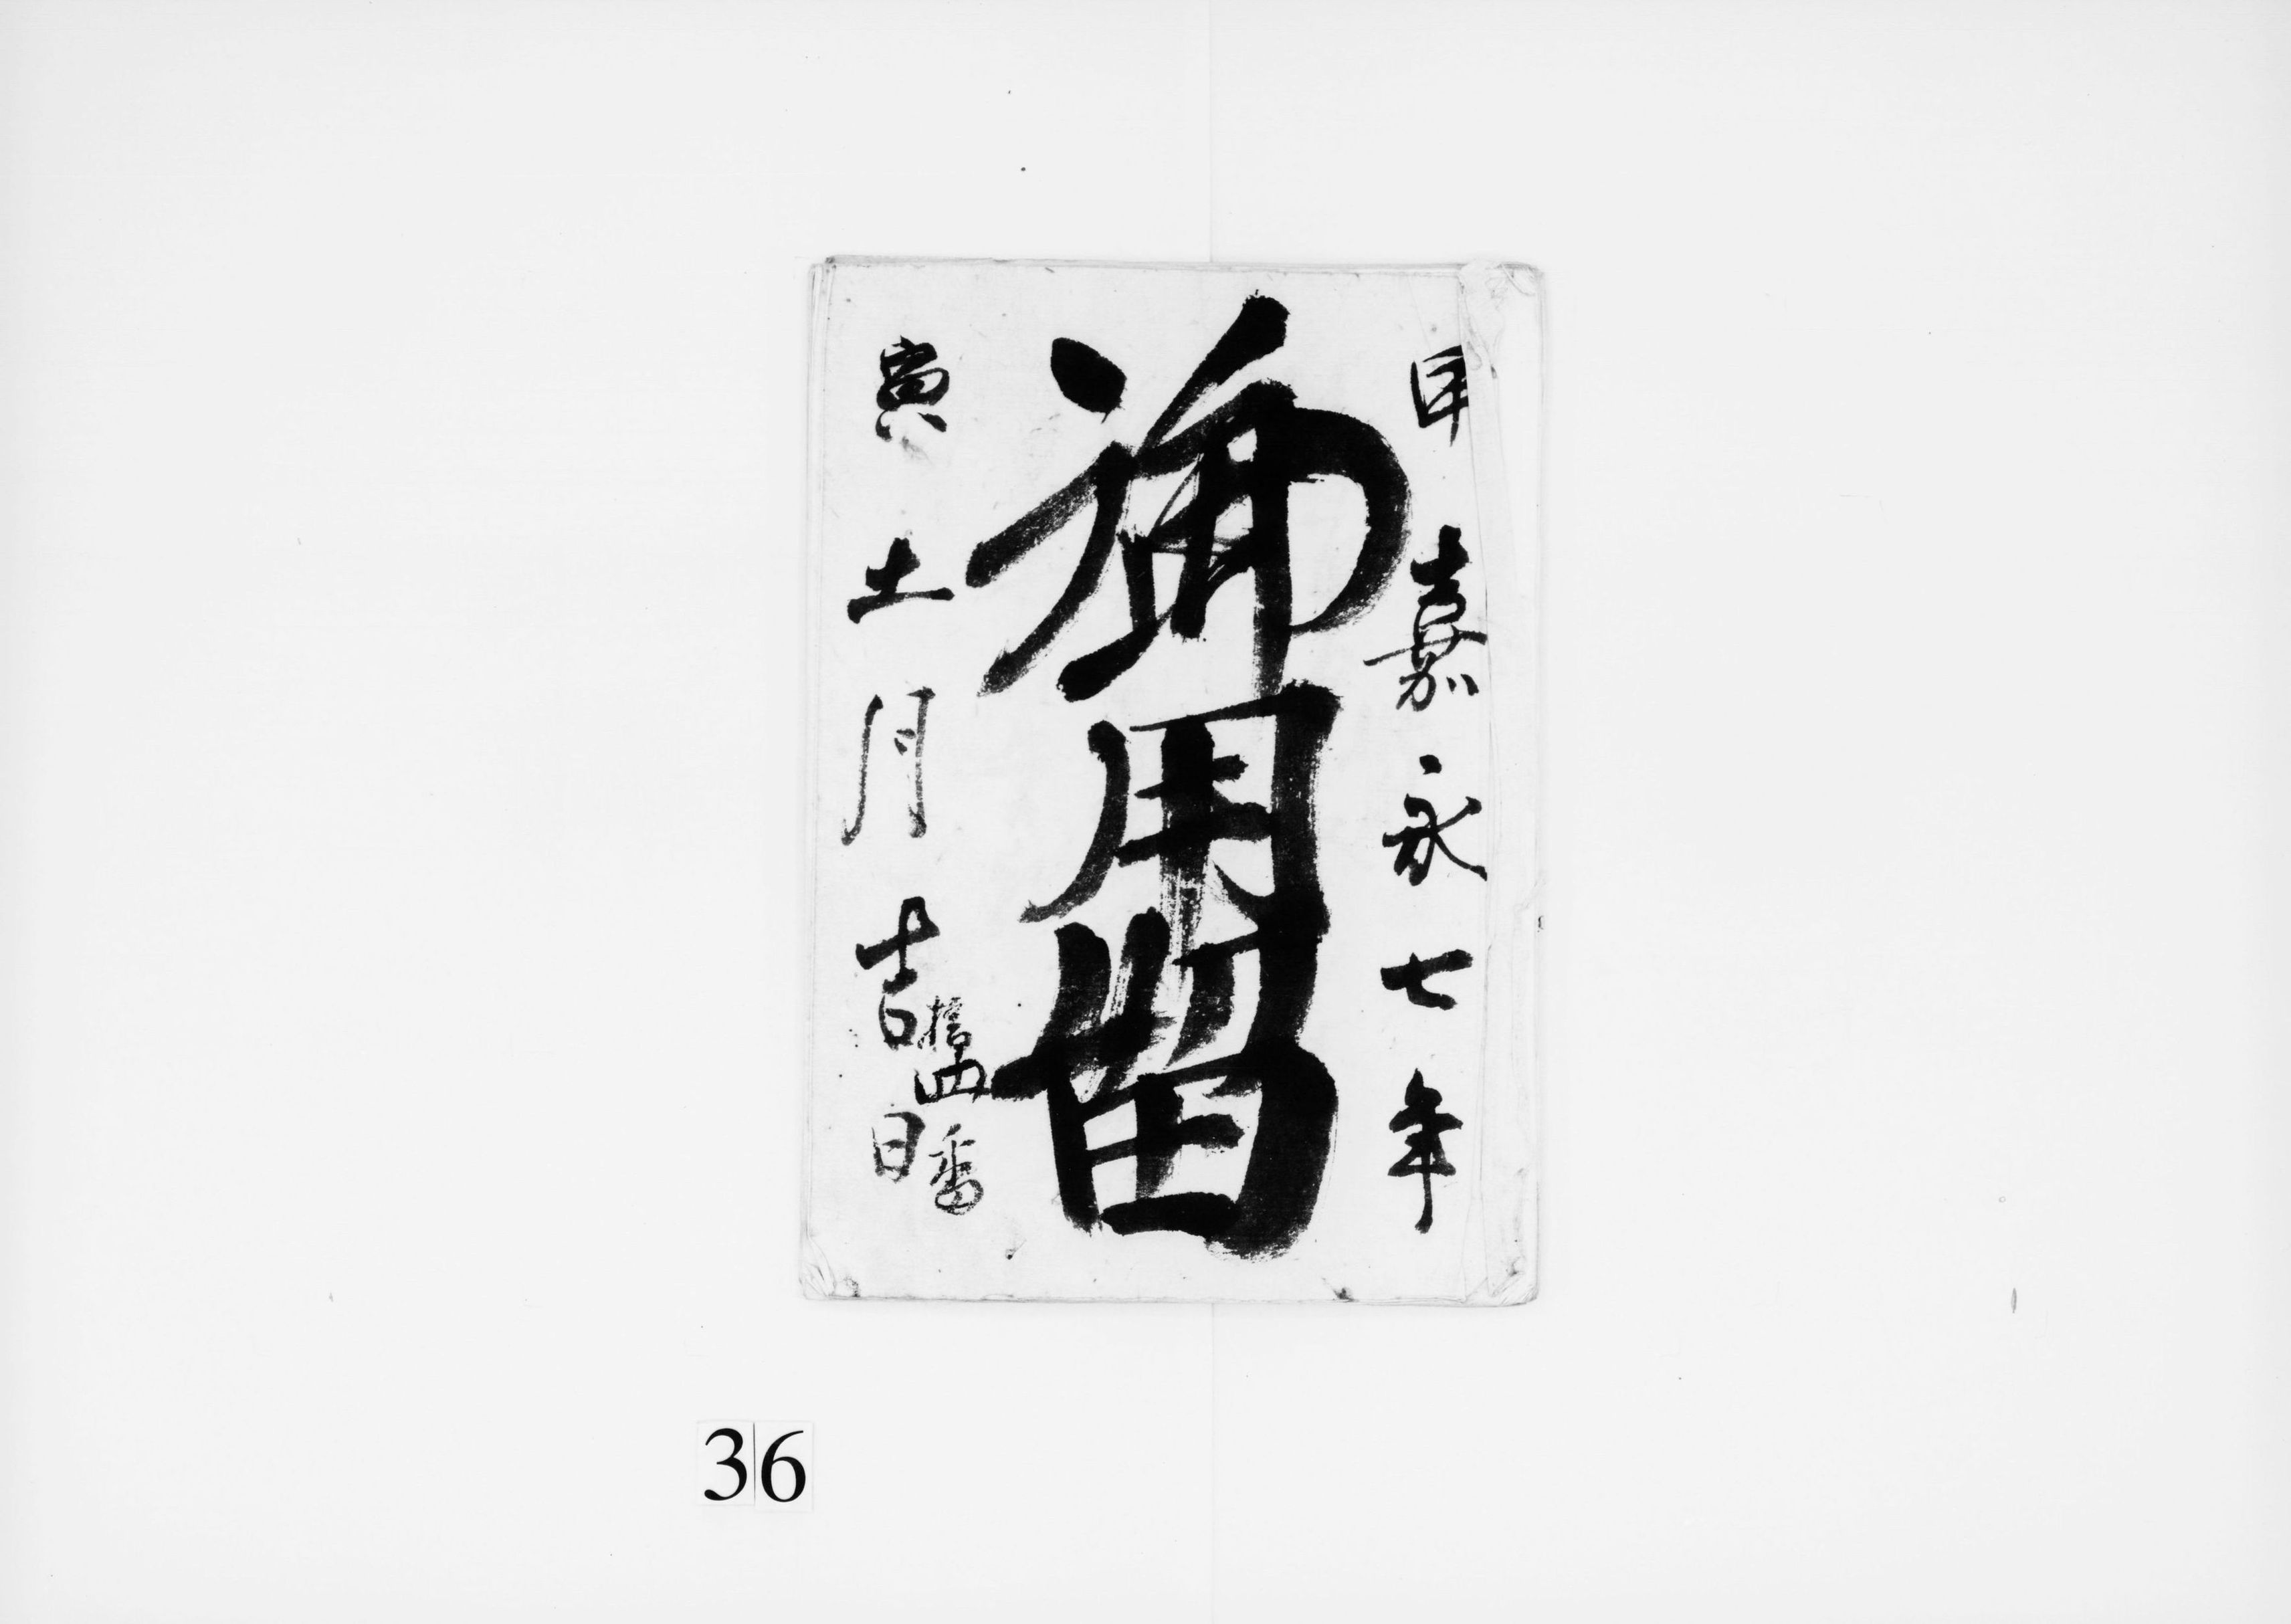 甲 嘉永七年
御用留
寅 十一月吉日
四番
36